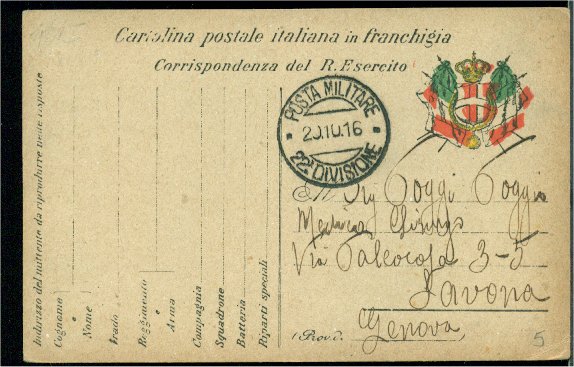 Cartolina postale italiana in franchigia
Corrispondenza del R. Esercito
POSTA MILITARE
20.10.16
22ª DIVISIONE
Indirizzo del mittente da riprodurre nelle risposte
Cognome
e
Nome
Grado
Reggimento
e
Arma
Compagnia
Squadrone
Batteria
Riparti speciali
Sig Poggi Poggio
Medico Chirurgo
Via Paleocapa 3-5
Savona
(Prov. d.
Genova
5